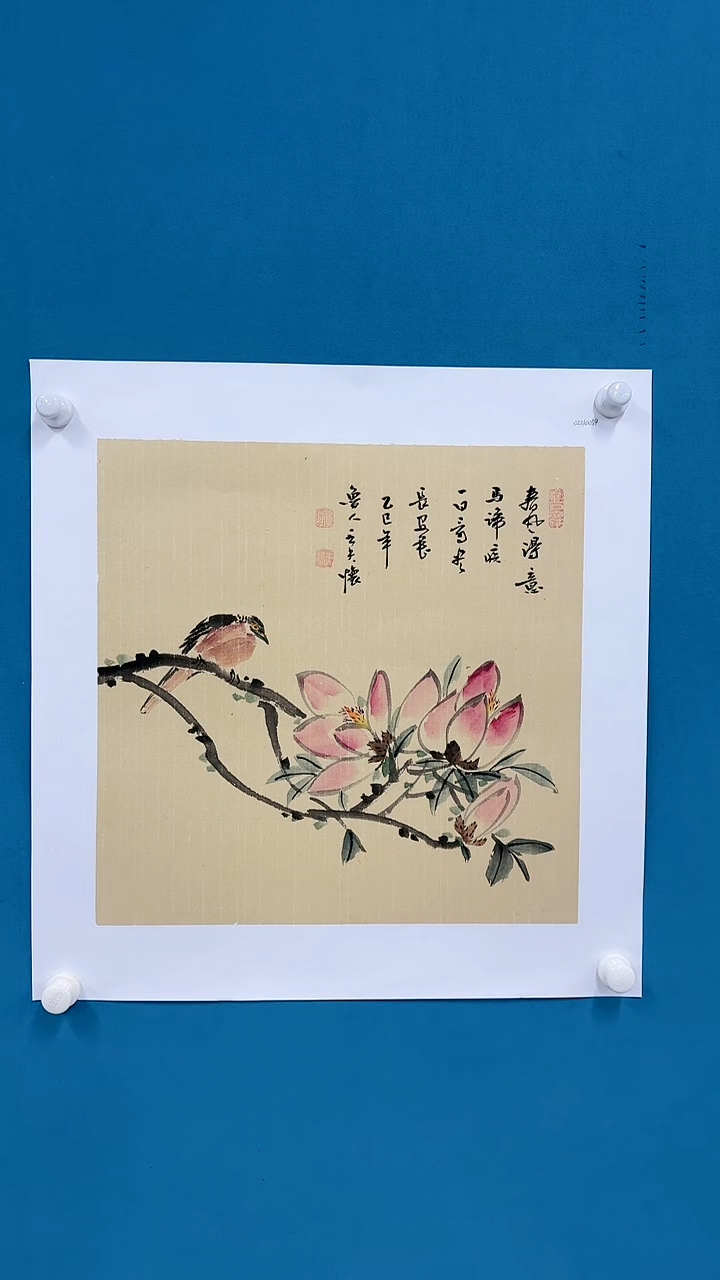 春风得意
马蹄疾
一日看尽
長安花
乙巳年
魯人